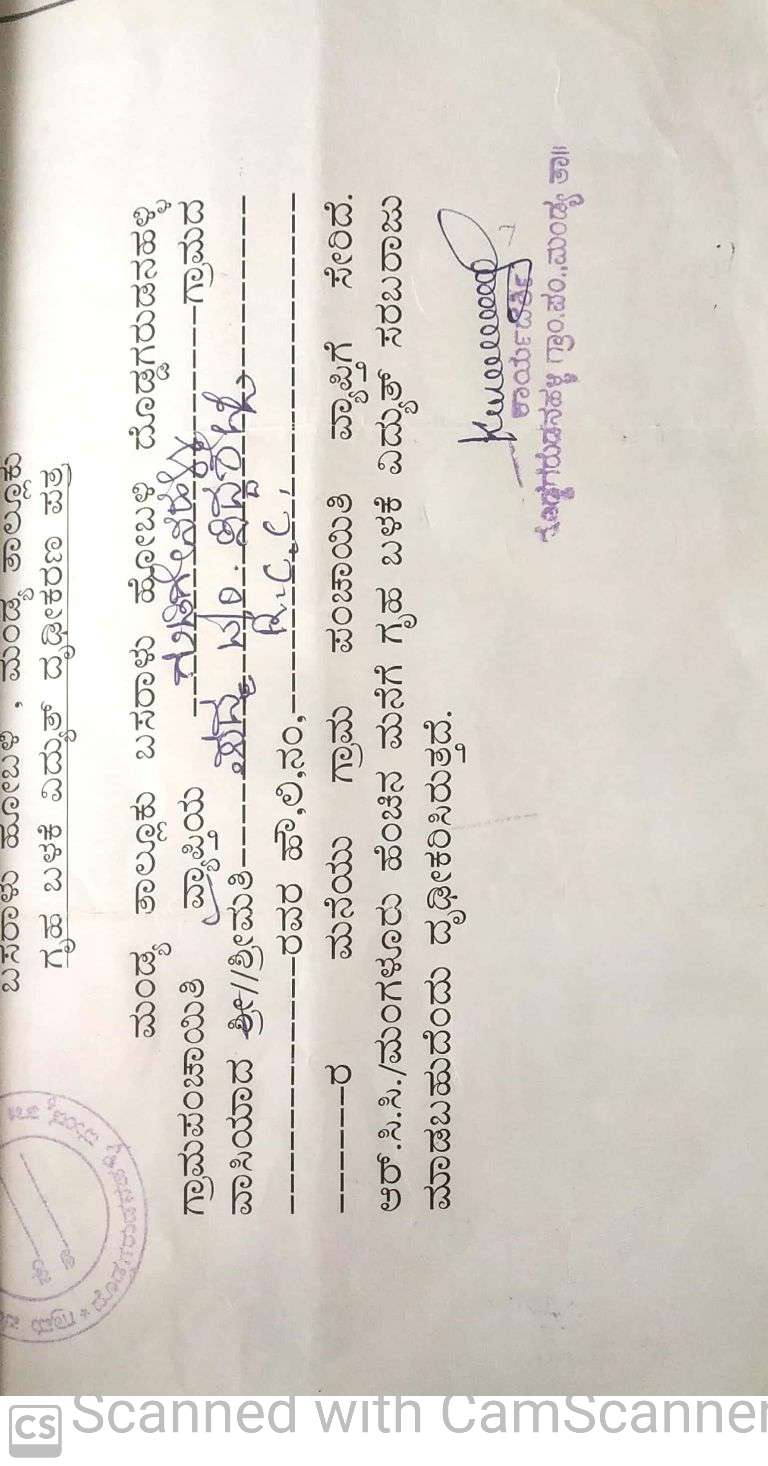 ಬಸರಾಳು ಹೋಬಳಿ , ಮಂಡ್ಯ ತಾಲ್ಲೂಕು
ಗೃಹ ಬಳಕೆ ವಿದ್ಯುತ್ ದೃಢೀಕರಣ ಪತ್ರ
ಮಂಡ್ಯ ತಾಲ್ಲೂಕು ಬಸರಾಳು ಹೋಬಳಿ ದೊಡ್ಡಗರುಡನಹಳ್ಳಿ
ಗ್ರಾಮಪಂಚಾಯಿತಿ ವ್ಯಾಪ್ತಿಯ ---------------------ಗ್ರಾಮದ
ವಾಸಿಯಾದ ಶ್ರೀ//ಶ್ರೀಮತಿ-----------------------------
-----------------ರವರ ಹೌ,ಲಿ,ನಂ,---R.C.C,-----------------
------ರ ಮನೆಯು ಗ್ರಾಮ ಪಂಚಾಯಿತಿ ವ್ಯಾಪ್ತಿಗೆ ಸೇರಿದೆ.
ಆರ್.ಸಿ.ಸಿ./ಮಂಗಳೂರು ಹೆಂಚಿನ ಮನೆಗೆ ಗೃಹ ಬಳಕೆ ವಿದ್ಯುತ್ ಸರಬರಾಜು
ಮಾಡಬಹುದೆಂದು ದೃಢೀಕರಿಸಿರುತ್ತದೆ.
ಕಾರ್ಯದರ್ಶಿ
ದೊಡ್ಡಗರುಡನಹಳ್ಳಿ ಗ್ರಾಂ.ಪಂ.,ಮಂಡ್ಯ ತಾ॥
CS Scanned with CamScanner